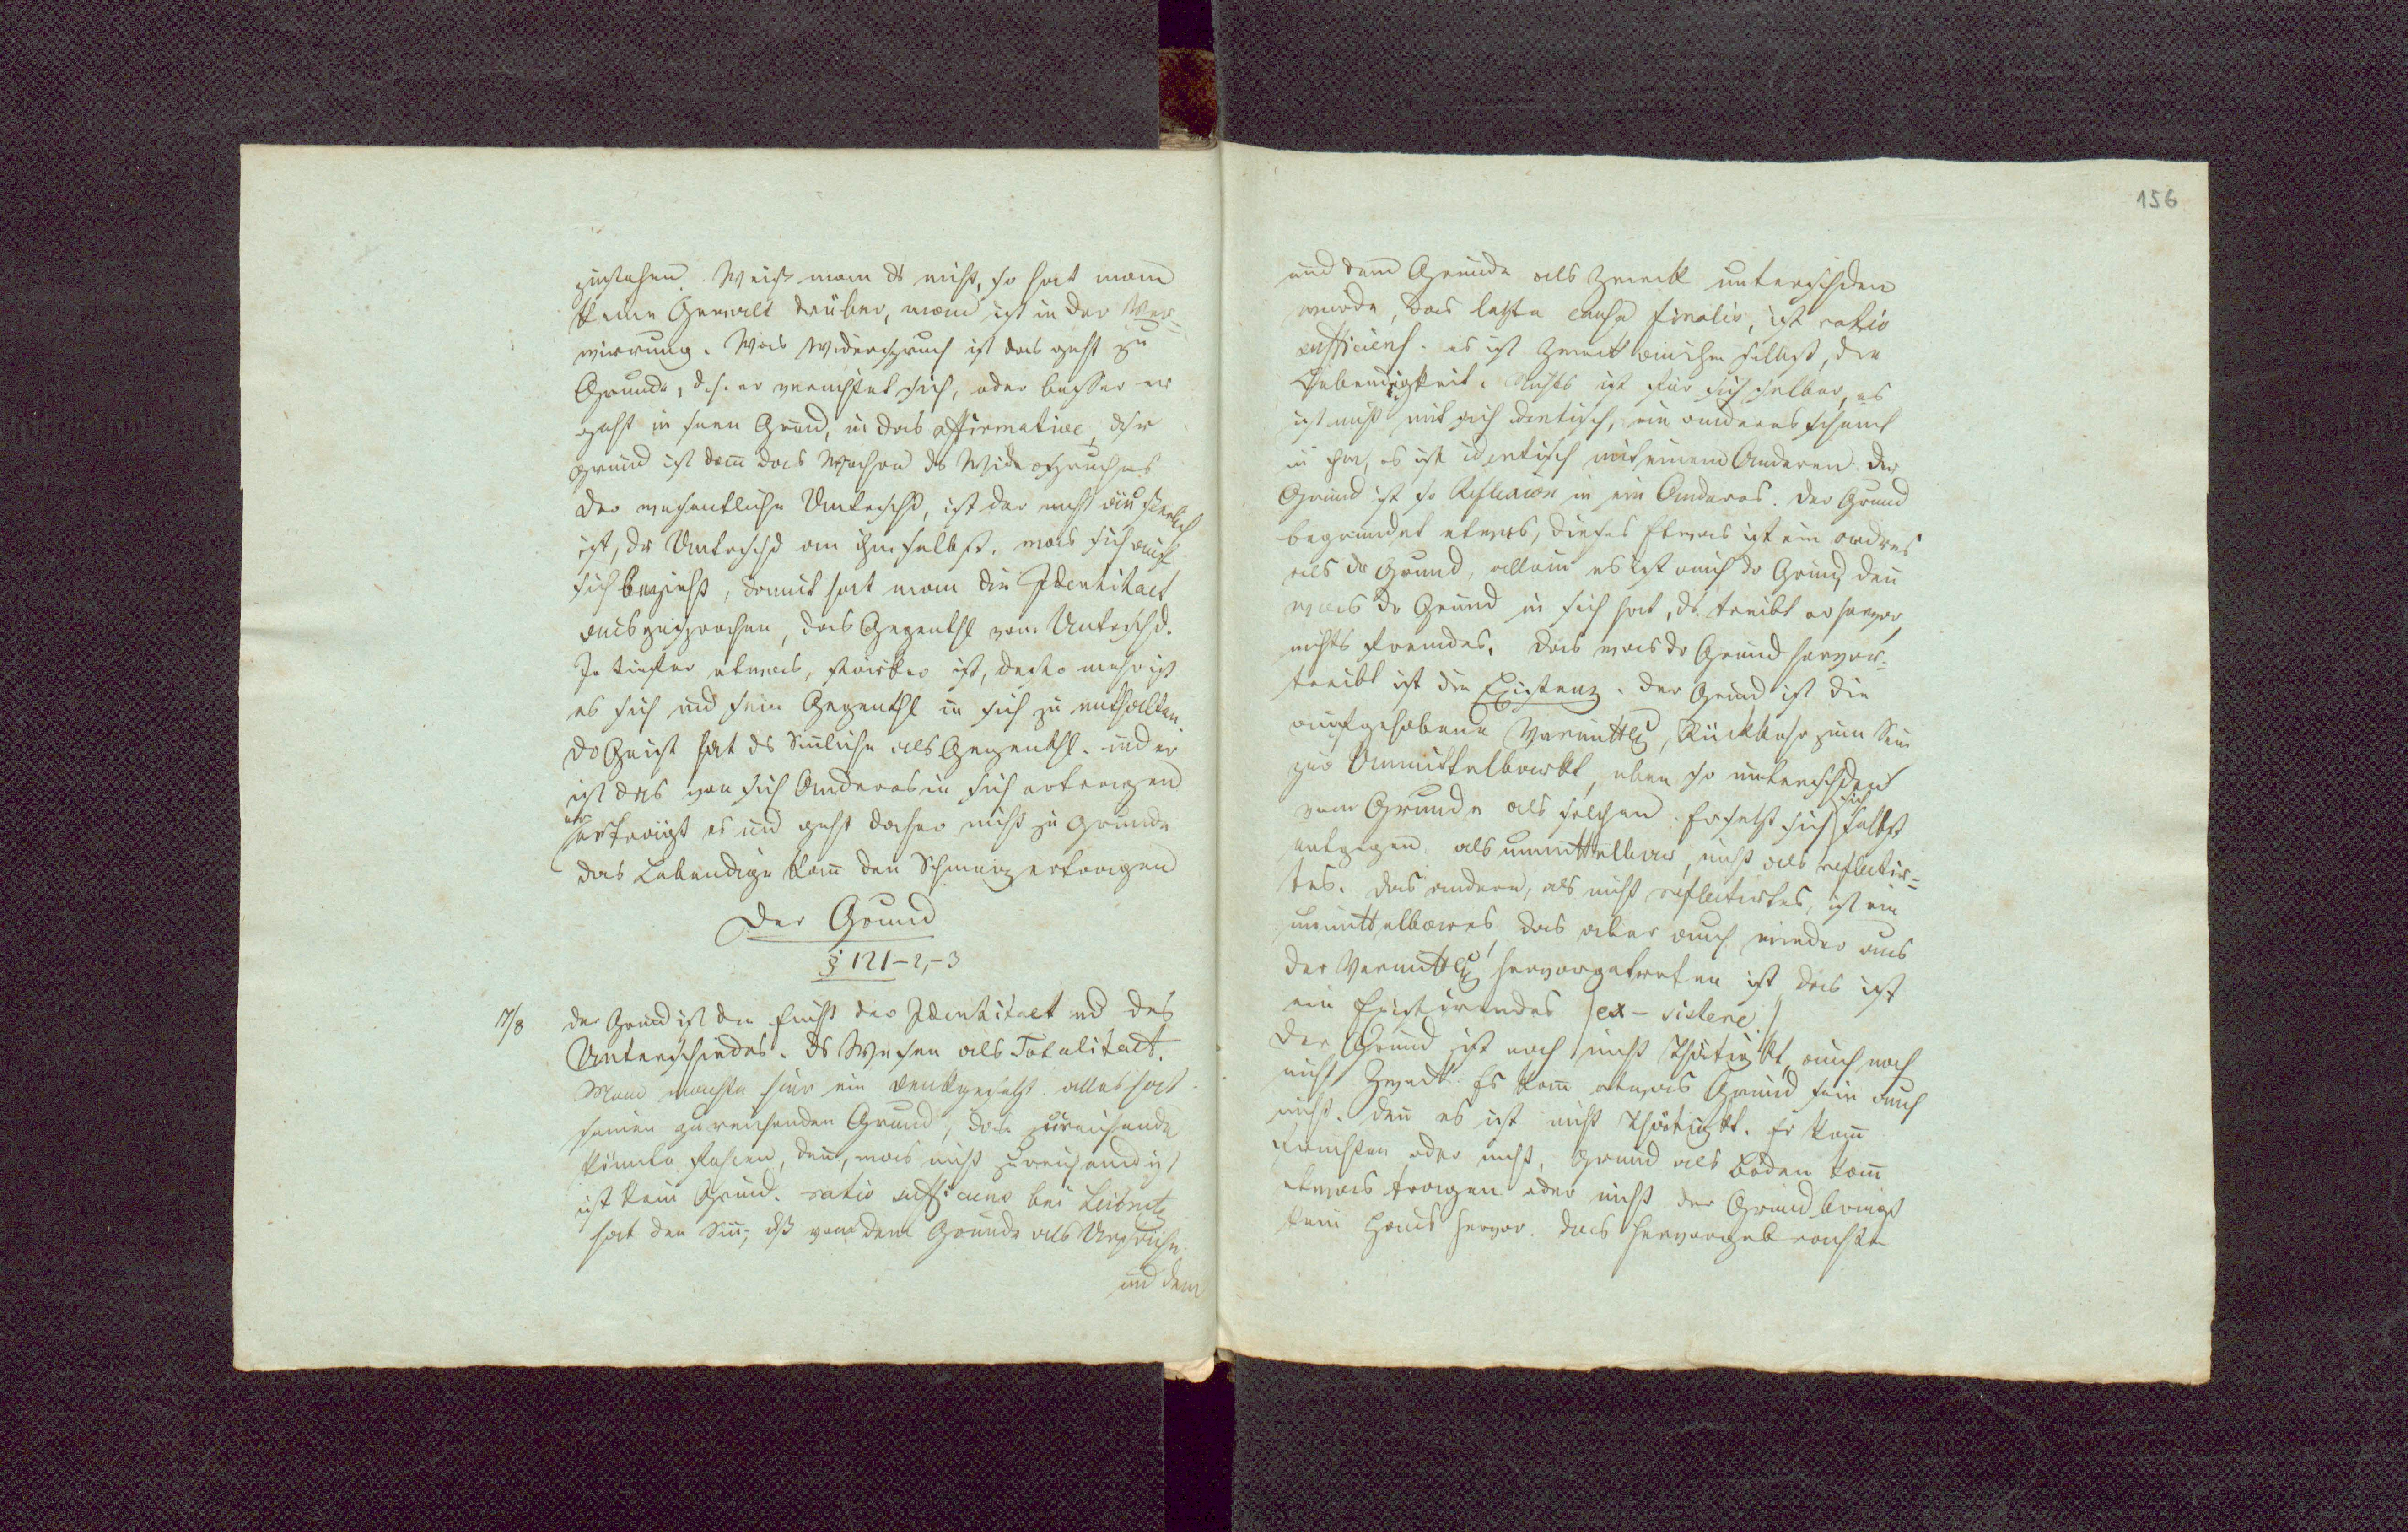 zustehen. Weiß man ds nicht, so hat man
keine Gewalt drüber, man ist in der Ver=
wirrung. Was Widerspruch ist das geht zu
Grunde, d.h. er vernichtet sich, oder besser er
geht in seinen Grund, in das affirmative, dsr
grund ist dann das Wahre ds Widerspruches
der wesentliche Unterschd, ist der nicht äußerlich
ist, dr Unterschd an ihm selbst. was sich auf
sich bezieht, damit hat man die Identitaet
ausgesprochen, das Gegenthl vom Unterschd.
Je tiefer etwas, stärker ist, desto mehr ist
es sich und sein Gegenthl in sich zu enthalten.
dr Geist hat ds Sinnliche als Gegenthl. und er
ist das von sich Anderes in sich ertragen
er erträgt es und geht daher nicht zu Grunde
das Lebendige kann den Schmerz ertragen
Der Grund
§ 121-2,-3
17/8 der Grund ist die Einht der Identitaet und des
Unterschiedes. ds Wesen als Totalitaet.
Man machte hier ein denkgesetz. alles hat
seinen zureichenden Grund, das zureichende
könnte fehlen, denn, was nicht zureichend ist
ist kein Grund. ratio sufficiens bei Leibnitz
hat den Sinn, dß von dem Grunde als Ursache
und dem
156
und dem Grunde als Zweck unterschden
wurde, das letzte causa finalis, ist ratio
sufficiens. es ist Zweck an ihm selbst, die
Lebendigkeit. Nichts ist für sich selber, es
ist nicht mit sich identisch, ein anderes scheint
in ihm, es ist identisch mit einem Anderen. Der
Grund ist so Reflexion in ein Anderes. Der Grund
begründet etwas, dieses Etwas ist ein andres
als dr Grund, allein es ist auch dr Grund, denn
was dr Grund in sich hat, ds treibt er hervor,
nichts fremdes. Das was dr Grund hervor=
treibt ist die Existenz. der Grund ist die
aufgehobene Vermittlg, Rückkehr zum Sein
zur Unmittelbarkt, eben so unterschden
vom Grunde als solchem. Er setzt sich sich selbst
entgegen als unmittelbar, nicht als reflectir=
tes. das andere, als nicht reflectirtes, ist ein
unmittelbares, das aber auch wieder aus
der Vermittlg hervorgetreten ist das ist
ein Existirendes (ex-sistere)
Der Grund ist noch nicht Thätigkt, auch noch
nicht Zweck. Es kann etwas Grund sein auch
nicht. denn es ist nicht Thätigkt. Er kann
fruchten oder nicht, Grund als Boden kann
etwas tragen oder nicht der Grund bringt
kein Haus hervor. das hervorgebrachte